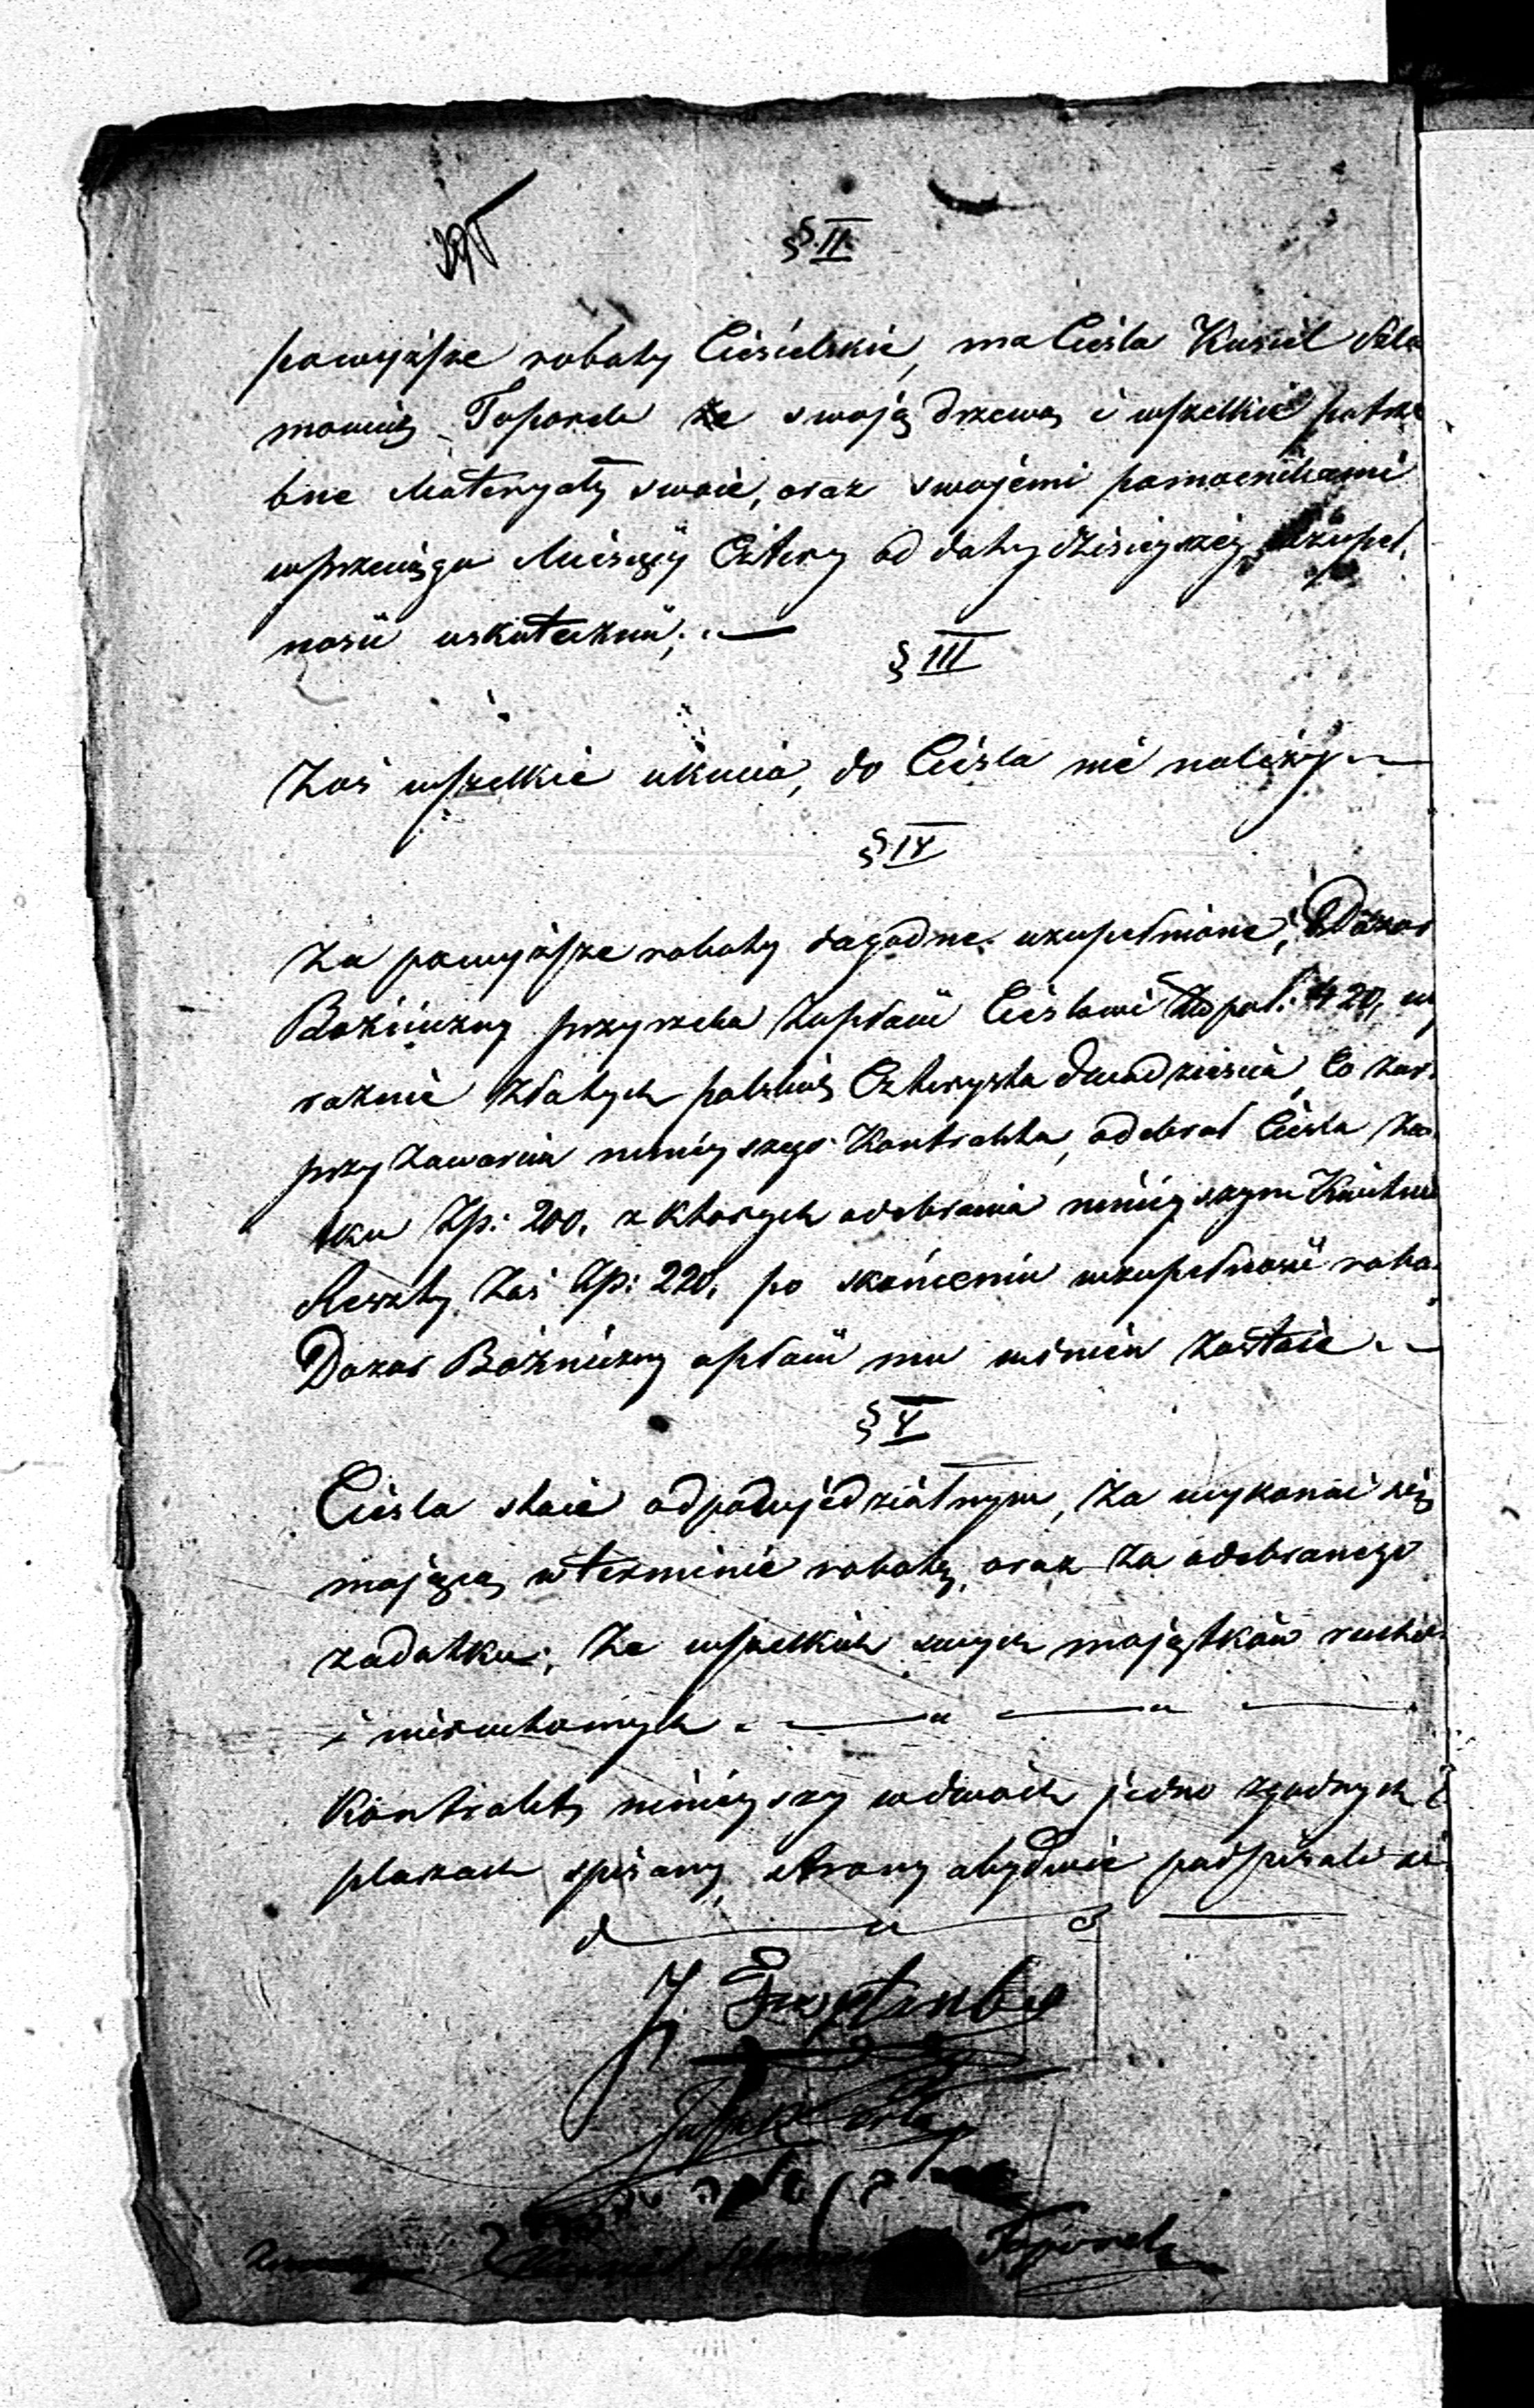 § II
powyższe roboty Ciesielskie, ma Ciesla Kusiel Szla
mowicz Toporek ze swoją drzewą i wszelkie potrze
bne Materyały swoie, oraz swojemi pomocnikami
wprzeciągu Miesięcy Cztery od daty dzisieyszey, wzupeł
ności uskutecznić;
§ III
Zaś wszelkie okucia, do Ciesla nie należy
§ IV
Za powyższe roboty dagodne uzupełnione, Dozor
Bożniczny przyrzeka zapłacić Cieslowi Złpol: 420, wy
raznie Złotych polskich Czterysta dwadziescia, Co zar.
przy zawarciu ninieyszego Kontraktu, odebrał Ciesla Za
tku Zp: 200. z ktorych odebrania ninieyszym Kwituie
Reszty Zaś Zp: 220. po skończeniu wzupełności robo.
Dozor Bożniczny opłacić mu winien zostaie
§ V
Ciesla staie odpowjedzialnym, Za wykonać się
mającey w terminie roboty, oraz za odebranego
zadatku; Ze wszelkich swych majątków rucho.
i nieruchomych
Kontrakt ninieyszy wdwoch jedno zgodnych E
plarzach spisany, strony obydwie podpisali się
J.
Toporek